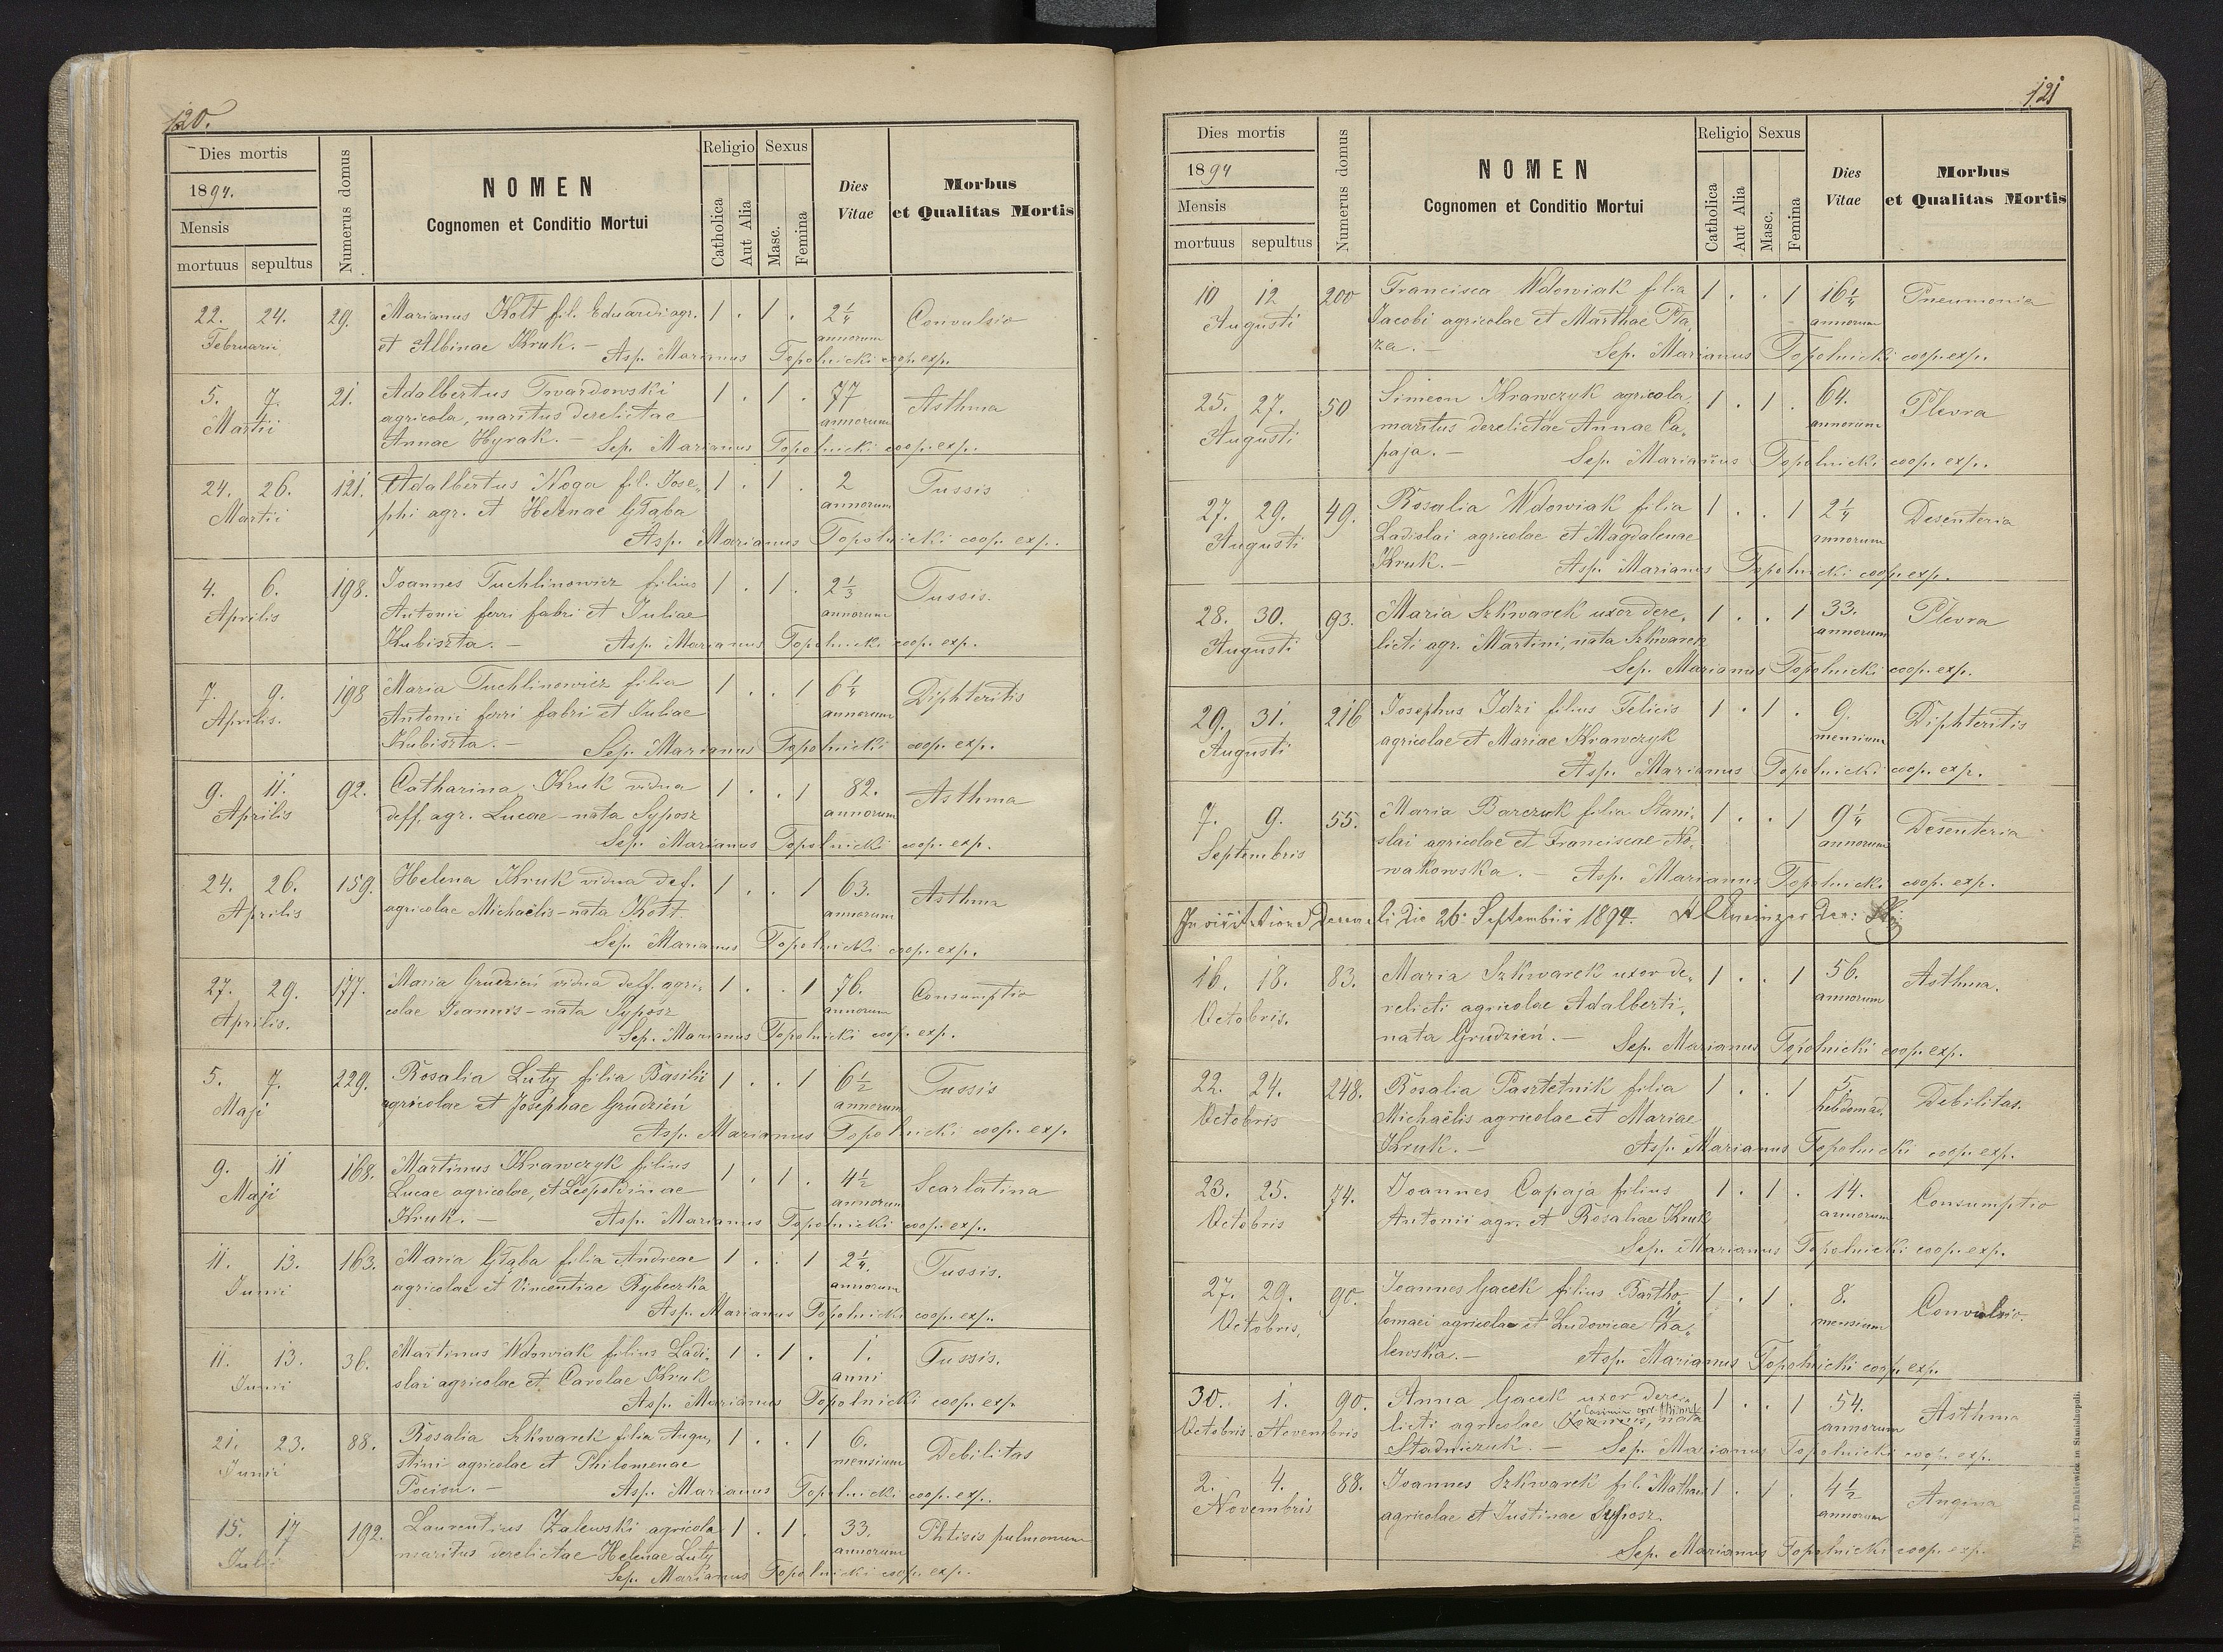 120.
Dies mortis
1894.
Mensis
mortuus sepultus
Numerus domus
NOMEN
Cognomen et Conditio Mortui
Religio
Catholica
Aut Alia
Sexus
Masc.
Femina
Dies
Vitae
Morbus
et Qualitas Mortis
22. 24. 29. Marianus Kott fil. Eduardi agr. 1 . 1 . 2 1/4 Convulsio
Februarii et Albinae Kruk. — annorum
Asp. Marianus Topolnicki coop. exp.
5. 7. 21. Adalbertus Twardowski 1 . 1 . 77 Asthma
Martii agricola, maritus derelictae annorum
Annae Hyrak. — Sep. Marianus Topolnicki coop. exp.
24. 26. 121. Adalbertus Noga fil. Jose„ 1 . 1 . 2 Tussis
Martii phi agr. et Helenae Głąba annorum
Asp. Marianus Topolnicki coop. exp.
4. 6. 198. Joannes Tuchlinowicz filius 1 . 1 . 2 1/3 Tussis.
Aprilis Antonii ferri fabri et Juliae annorum
Kubiszta. — Asp. Marianus Topolnicki coop. exp.
7. 9. 198 Maria Tuchlinowicz filia 1 . . 1 6 1/4 Diphteritis
Aprilis. Antonii ferri fabri et Juliae annorum
Kubiszta. — Sep. Marianus Topolnicki coop. exp.
9. 11. 92. Catharina Kruk vidua 1 . . 1 82. Asthma
Aprilis deff. agr. Lucae – nata Syposz annorum
Sep. Marianus Topolnicki coop. exp.
24. 26. 159. Helena Kruk vidua def. 1 . . 1 63. Asthma
Aprilis agricolae Michaëlis – nata Kott annorum
Sep. Marianus Topolnicki coop. exp.
27. 29. 177. Maria Grudzień vidua deff. agri„ 1 . . 1 76. Consumptio
Aprilis. colae Joannis – nata Syposz annorum
Sep. Marianus Topolnicki coop. exp.
5. 7. 229. Rosalia Luty filia Basilii 1 . . 1 6 1/2 Tussis
Maji agricolae et Josephae Grudzień annorum
Asp. Marianus Topolnicki coop. exp
9. 11 168. Martinus Krawczyk filius 1 . 1 . 4 1/2 Scarlatina
Maji Lucae agricolae, et Leopoldinae annorum
Kruk. — Asp. Marianus Topolnicki coop. exp.
11. 13. 163. Maria Głąba filia Andreae 1 . . 1 2 1/4. Tussis.
Junii agricolae et Vincentiae Rybeczka annorum
Asp. Marianus Topolnicki coop. exp.
11. 13. 36. Martinus Wdowiak filius Ladi„ 1 . 1 . 1. Tussis.
Junii slai agricolae et Carolae Kruk anni
Asp. Marianus Topolnicki coop. exp
21. 23. 88. Rosalia Szkwarek filia Augu„ 1 . . 1 6. Debilitas
Junii stini agricolae et Philomenae mensium
Asp. Marianus Topolnicki coop. exp.
15. 17 192. Laurentius Zalewski agricola 1 . 1 . 33. Phtisis pulmonum
Julii maritus derelictae Helenae Luty annorum
Sep. Marianus Topolnicki coop. exp.
121
Dies mortis
1894
Mensis
mortuus sepultus
Numerus domus
NOMEN
Cognomen et Conditio Mortui
Religio
Catholica
Aut Alia
Sexus
Masc.
Femina
Dies
Vitae
Morbus
et Qualitas Mortis
10 12 200 Francisca Wdowiak filia 1 . . 1 16 1/4 Pneumonia
Augusti Jacobi agricolae et Marthae Pta„ annorum
Sep. Marianus Topolnicki coop. exp.
25. 27. 50 Simeon Krawczyk agricola, 1 . 1 . 64. Plevra
Augusti maritus derelictae Annae Ca„ annorum
paja. — Sep. Marianus Topolnicki coop. exp.
27. 29. 49. Rosalia Wdowiak filia 1 . . 1 2 1/4 Desenteria
Augusti Ladislai agricolae et Magdalenae annorum
Kruk. — Asp. Marianus Topolnicki coop. exp.
28. 30. 93. Maria Szkwarek uxor dere„ 1 . . 1 33. Plevra
Augusti licti agr. Martini, nata Szkwarek annorum
Sep. Marianus Topolnicki coop. exp.
29. 31. 216 Josephus Idzi filius Felicis 1 . 1 . 9. Diphteritis
Augusti agricolae et Mariae Krawczyk mensium
Asp. Marianus Topolnicki coop. exp.
7. 9. 55. Maria Barczuk filia Stani„ 1 . . 1 9 1/4 Desenteria
Septembris slai agricolae et Franciscae No„ annorum
wakowska. — Asp. Marianus Topolnicki coop. exp.
In visitatione Decanali die 26. Septembris 1894.
16. 18. 83. Maria Szkwarek uxor de„ 1 . . 1 56. Asthma.
Octobris. relicti agricolae Adalberti, annorum
nata Grudzień. — Sep. Marianus Topolnicki coop. exp.
22. 24. 248. Rosalia Pasztetnik filia 1 . . 1 5. Debilitas.
Octobris Michaëlis agricolae et Mariae hebdomad.
Kruk. — Asp. Marianus Topolnicki coop. exp.
23. 25. 74. Joannes Capaja filius 1 . 1 . 14. Consumptio
Octobris Antonii agr. et Rosaliae Kruk annorum
Sep. Marianus Topolnicki coop. exp.
27. 29. 90. Joannes Gacek filius Bartho„ 1 . 1 . 8. Convulsio.
Octobris, lomaei agricolae et Ludovicae Za„ mensium
lewska. — Asp. Marianus Topolnicki coop. exp.
30. 1. 90. Anna Gacek uxor dere„ 1 . . 1 54. Asthma
Octobris. Novembris licti agricolae Joannis, nata annorum
Stadniczuk. — Sep. Marianus Topolnicki coop. exp.
2. 4. 88. Joannes Szkwarek fil. Mathaei 1 . 1 . 4 1/2 Angina
Novembris agricolae et Justinae Syposz. annorum
Sep. Marianus Topolnicki coop. exp.
Typis J. Dankiewicz Stanislaopoli.